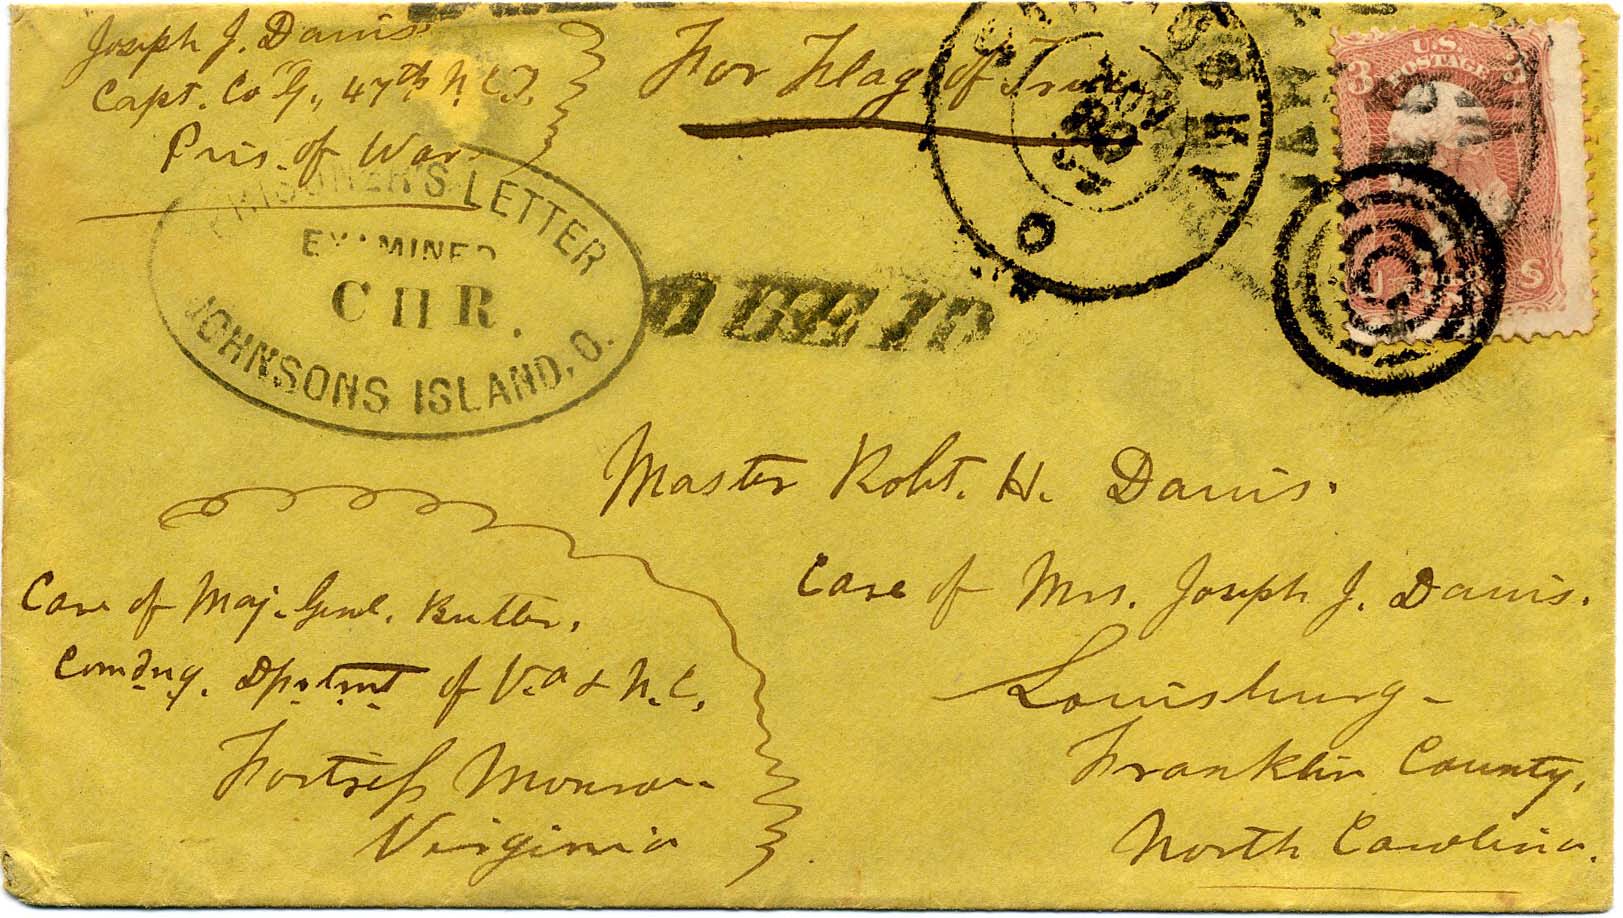 Joseph J. Davis.
Capt. Co "G", 47th N.C.T.
Pris. of War.
For Flag of Truce
PRISONER'S LETTER
EXAMINED
JOHNSONS ISLAND, O.
U.S.
POSTAGE
3
3
NOV
O
Master Robt. H. Davis.
Care of Mrs. Joseph J. Davis.
Louisburg-
Franklin County,
North Carolina.
Care of Maj. Genl. Butler.
Comdng. Dpartmt of Va & N.C.
Fortress Monroe
Virginia